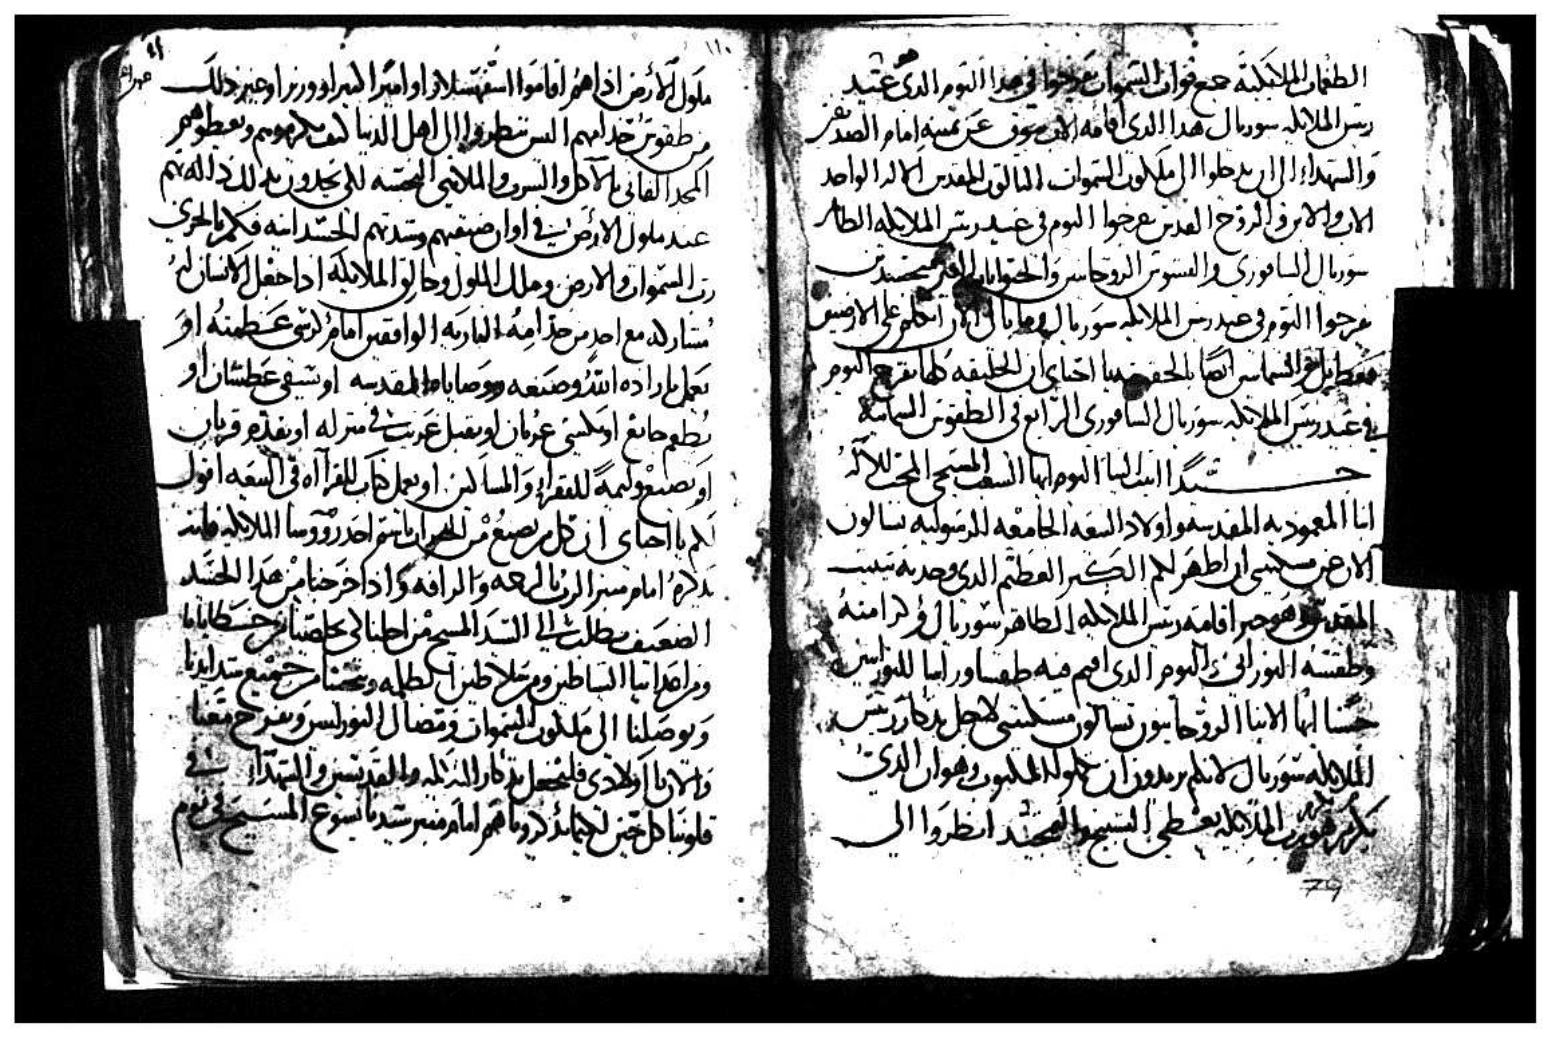 الطغمات الملايكية جميع قوات السموات يفرحوا في هذا اليوم الذى هو عيد
ريس الملايكه سوريال هذا الذى اقامه الاب عوض عن يمينه امام الصديقين
والشهداء الى ان يدخلوا الى ملكوت السموات الثالوث المقدس الاله الواحد
الاب والابن والروح القدس يفرحوا اليوم في عيد ريس الملايكه الطاهر
سوريال السافورى والقسوس الروحانيين
يفرحوا اليوم في عيد ريس الملايكه سوريال الان اتكلم على الارضيين
الشمامس ايضا بالحقيقه يا احباى ان الخليقه كلها تفرح اليوم
في عيد ريس الملايكه سوريال السافورى الرابع في الطقوس السمايه
حسنا اتيت الينا اليوم ايها الشعب المسيحى المحب للاله
ابنا المعموديه المقدسه واولاد البيعه الجامعه الرسوليه تسالون
الارض مسكنتى ان اظهر لكم الكبير العظيم الذى وجدته ببيت
المقدس وهو خبر اقامة ريس الملايكه الطاهر سوريال وكرامته
وطقسه النورانى في اليوم الذى اقيم فيه طقسا وراسا للنورانيين
حسنا ايها الابنا الروحانيون تسالون مسكنتى لاجل تذكار ريس
الملايكه سوريال لانكم تريدون ان وهوان الذى
يكرم هو رب الملايكه يعطى التسبيح والتمجيد انظروا الى
79
١١٠
ملوك الارض اذا هم اقاموا اسفهسلار او امير الكبير او وزير او غير ذلك
من طقوس خدامهم اليس تنظروا الى اهل الدنيا كيف يكرموهم ويعطوهم
المجد الفانى بالاكل والشرب والملابس الحسنه لكى يجدون بذلك داله بهم
عند ملوك الارض في اوان ضيقهم وشدتهم الجسدانيه فكم بالحرى
رب السموات والارض وملك الملوك وخالق الملايكه اذا جعل الانسان له
مشاركه مع احد من خدامه الناريه الواقفين امام كرسى عظمته او
يعمل باراده الله وصنعه ووصاياه المقدسه او يسقى عطشان او
يطعم جايع او يكسى عريان او يقبل غريب في منزله او يقدم قربان
او يصنع وليمة للفقراء والمساكين او يعمل كتاب للقرااه في البيعه اقول
لكم يا احباى ان كل من يصنع من الخيرات باسم احد رووسا الملايكه فانه
يذكره امام منبر الرب بالرحمه والرافه واذا خرجنا من هذا الجسد
الضعيف يطلب الى السيد المسيح من اجلنا لكى يخلصنا من خطايانا
ومن اعداينا الشياطين ومن سلاطين الظلمه وينجينا من جميع شدايدنا
ويوصلنا الى ملكوت السموات ومصال النور ليس ويفرح معنا
والان يا اولادى فلنجعل تذكار الملايكه والقديسين والشهداء في
قلوبنا كل حين لكيما يذكرونا هم امام منبر سيدنا يسوع المسيح في يوم